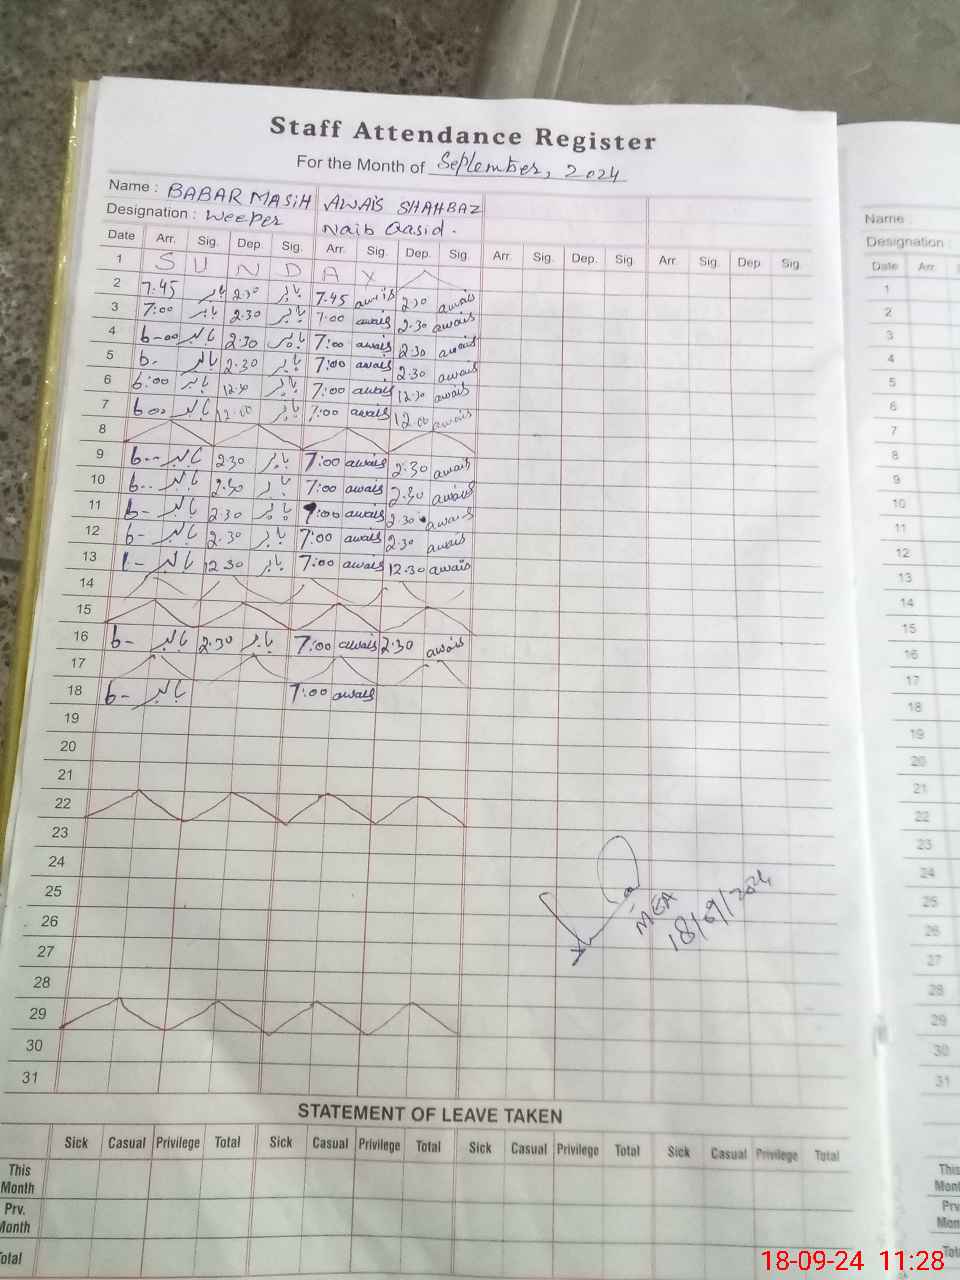 Staff Attendance Register
For the Month of September, 2024
Name : BABAR MASIH AWAIS SHAHBAZ
Designation : Weeper Naib Qasid.
Date Arr. Sig. Dep. Sig. Arr. Sig. Dep. Sig. Arr. Sig. Dep. Sig. Arr. Sig. Dep. Sig.
1 S U N D A Y
2 7.45 بابر 2.30 بابر 7.45 awais 2.30 awais
3 7:00 بابر 2.30 بابر 7:00 awais 2.30 awais
4 6-00 بابر 2.30 بابر 7:00 awais 2.30 awais
5 6- بابر 2.30 بابر 7:00 awais 2.30 awais
6 6:00 بابر 12.30 بابر 7:00 awais 12.30 awais
7 600 بابر 12.00 بابر 7:00 awais 12.00 awais
8
9 6-- بابر 2.30 بابر 7:00 awais 2.30 awais
10 6.. بابر 2.30 بابر 7:00 awais 2.30 awais
11 6- بابر 2.30 بابر 7:00 awais 2.30 awais
12 6- بابر 2.30 بابر 7:00 awais 2.30 awais
13 بابر 12.30 بابر 7:00 awais 12.30 awais
14
15
16 6- بابر 2.30 بابر 7:00 awais 2.30 awais
17
18 6- بابر 7:00 awais
19
20
21
22
23
24
25
26
27
28
29
30
31
MEA
18/09/2024
STATEMENT OF LEAVE TAKEN
Sick Casual Privilege Total Sick Casual Privilege Total Sick Casual Privilege Total Sick Casual Privilege Total
This
Month
Prv.
Month
Total
Name :
Designation :
Date Arr. Sig
1
2
3
4
5
6
7
8
9
10
11
12
13
14
15
16
17
18
19
20
21
22
23
24
25
26
27
28
29
30
31
This
Mont
Prv
Mon
Tot
18-09-24 11:28